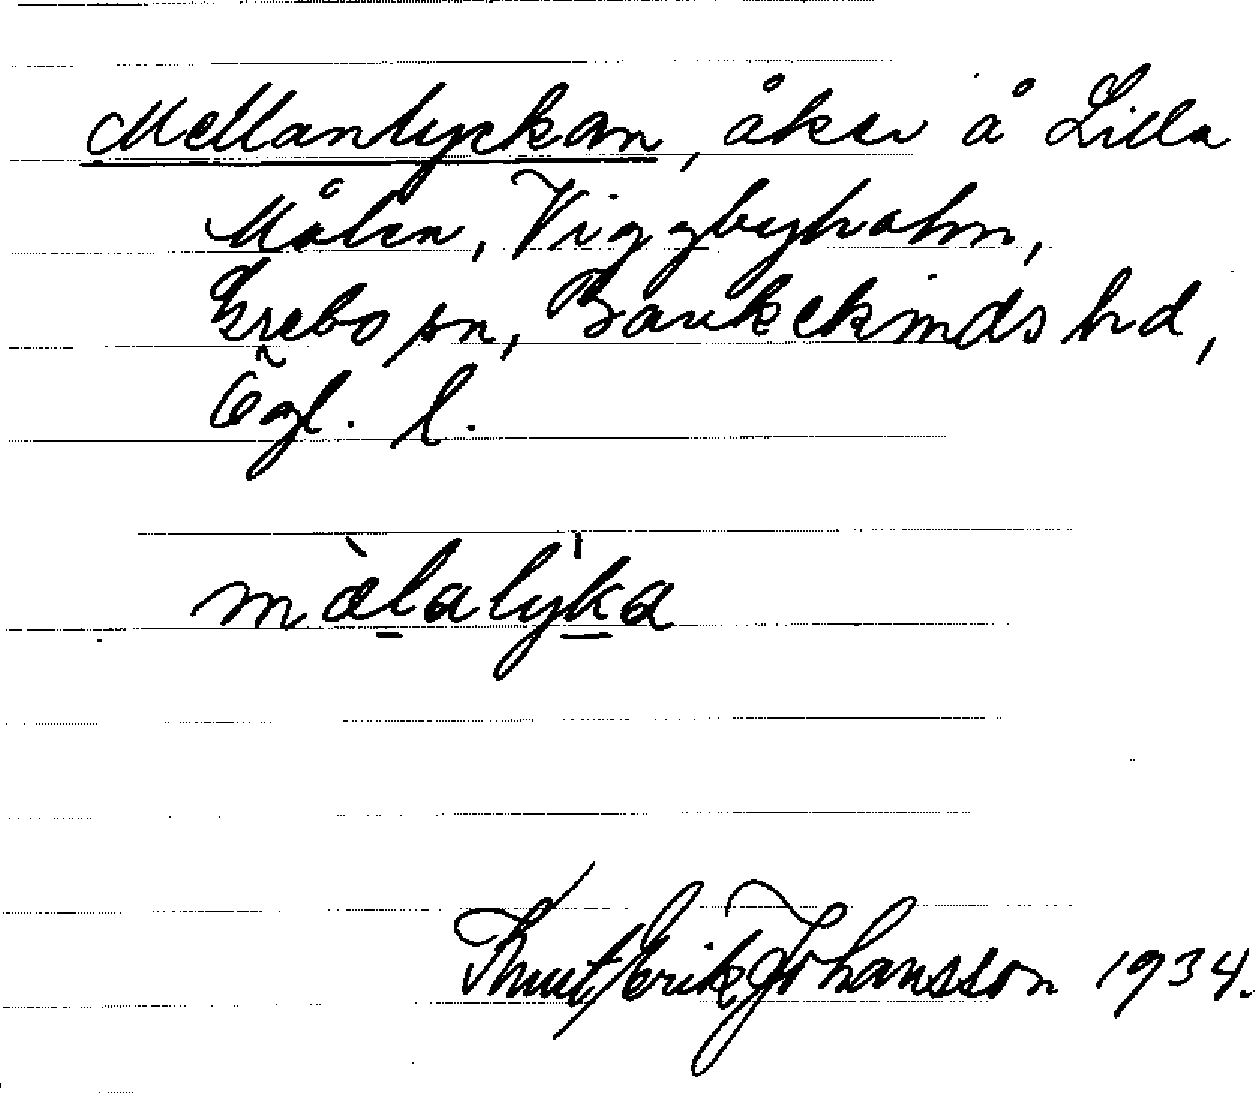 Mellanlyckan, åker å Lilla
Målen, Viggbyholm,
Grebo sn, Bankekinds hd,
Ögl. l.
mæ̀lalỳka
Knut Erik Johansson 1934.